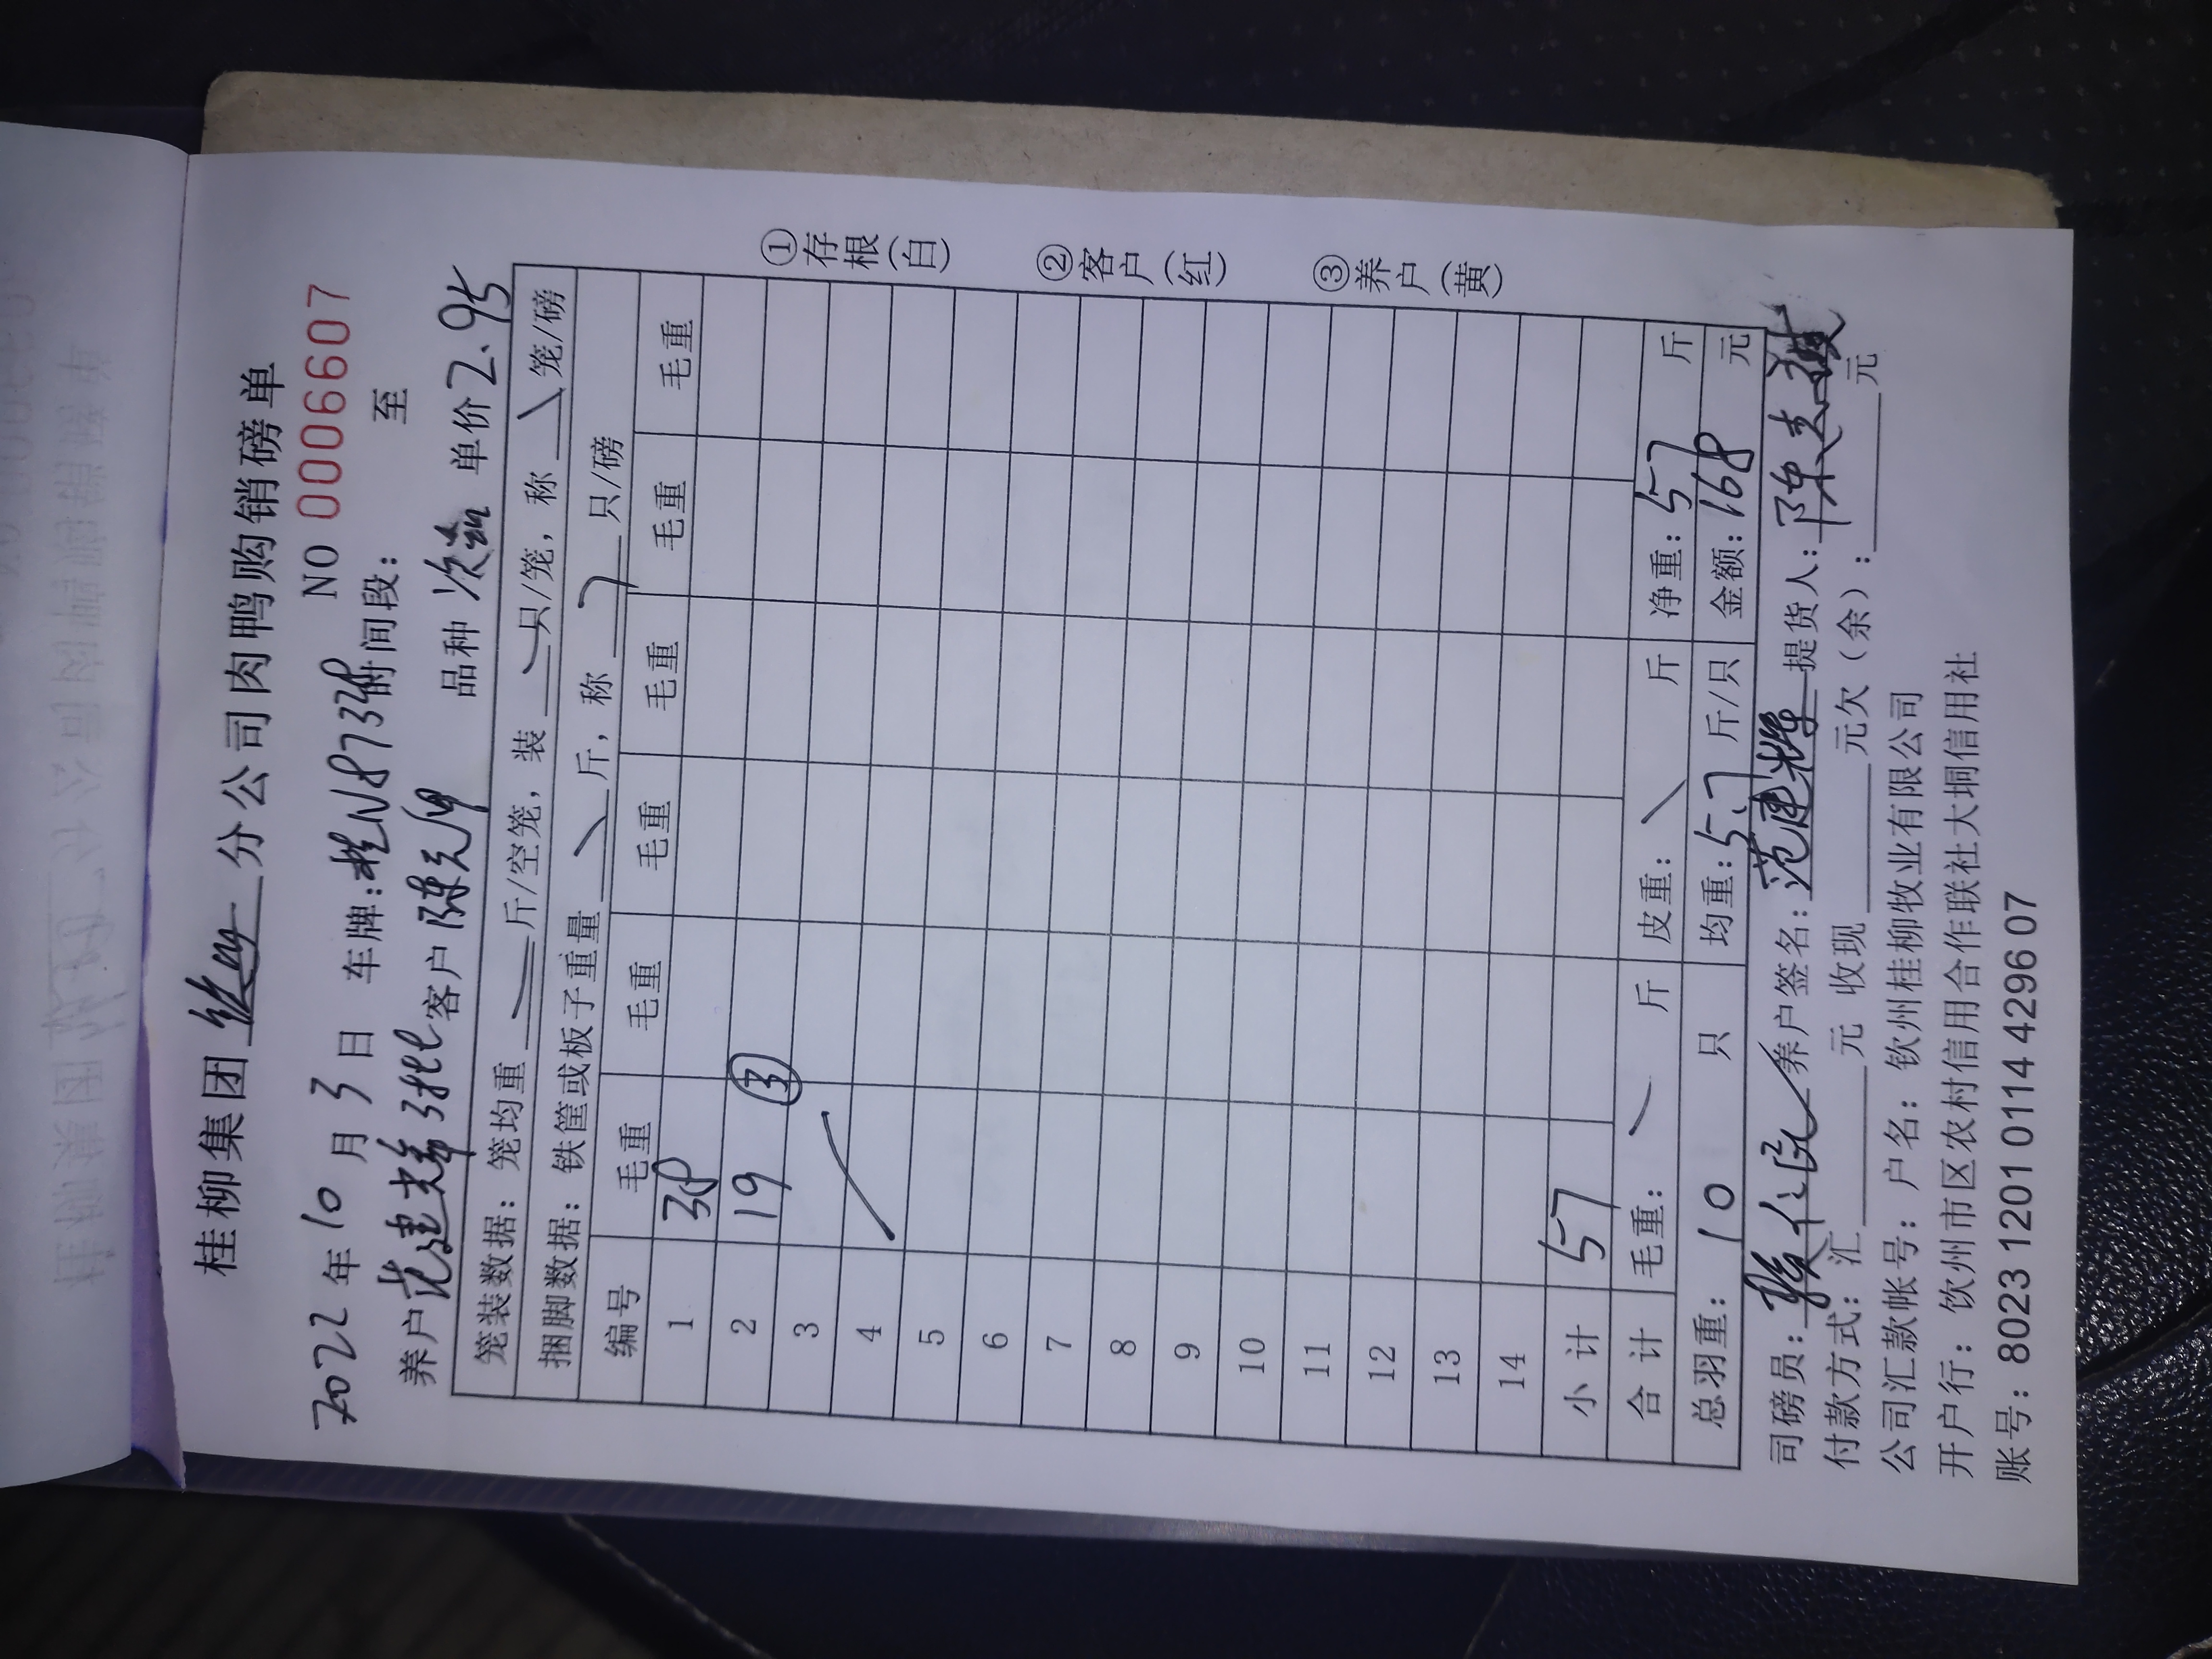 桂柳集团 分公司肉鸭购销磅单
NO 0006607
2022年10月3日 车牌:桂N8734 时间段: 至
养户 范建辉 3批 客户 陈元 品种 次 单价 2.95
笼装数据: 笼均重 斤/空笼, 装 只/笼, 称 笼/磅
捆脚数据: 铁筐或板子重量 斤, 称 只/磅
编号 毛重 毛重 毛重 毛重 毛重 毛重
1 38
2 19 ③
3
4
5
6
7
8
9
10
11
12
13
14
小计 57
合计 毛重: 斤 皮重: 斤 净重: 57 斤
总羽重: 10 只 均重: 5.7 斤/只 金额: 168 元
司磅员: 养户签名: 范建辉 提货人: 陈
付款方式: 汇 元 收现 元欠(余): 元
公司汇款帐号: 户名: 钦州桂柳牧业有限公司
开户行: 钦州市区农村信用合作联社大垌信用社
账号: 8023 1201 0114 4296 07
①存根(白)
②客户(红)
③养户(黄)